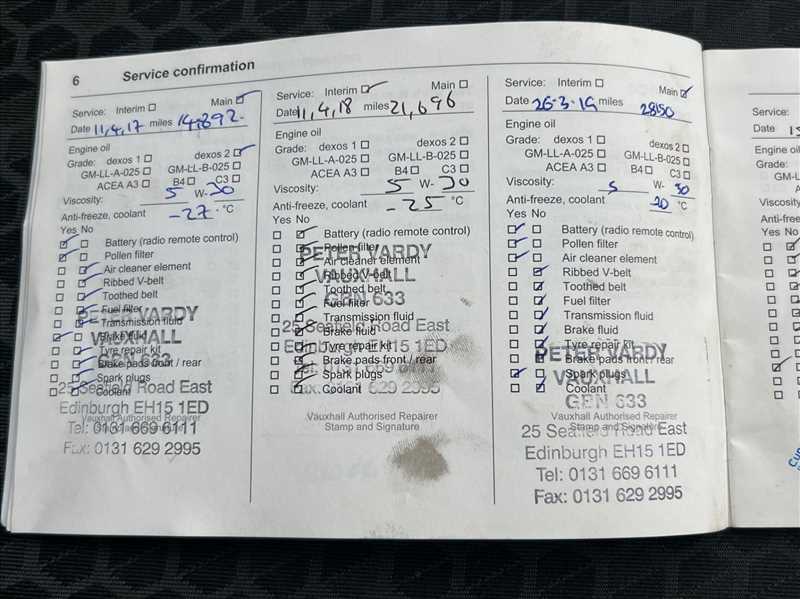 6 Service confirmation
Service: Interim Main
Date 11,4,17 miles 14,892.
Engine oil
Grade: dexos 1 dexos 2
GM-LL-A-025 GM-LL-B-025
ACEA A3 B4 C3
Viscosity: 5 W- 30
Anti-freeze, coolant -27. °C
Yes No
Battery (radio remote control)
Pollen filter
Air cleaner element
Ribbed V-belt
Toothed belt
Fuel filter
Transmission fluid
Brake fluid
Tyre repair kit
Brake pads front / rear
Spark plugs
Coolant
Vauxhall Authorised Repairer
Stamp and Signature
PETER VARDY
VAUXHALL
GBN 633
25 Seafield Road East
Edinburgh EH15 1ED
Tel: 0131 669 6111
Fax: 0131 629 2995
Service: Interim Main
Date 11,4,18 miles 21,696
Engine oil
Grade: dexos 1 dexos 2
GM-LL-A-025 GM-LL-B-025
ACEA A3 B4 C3
Viscosity: 5 W- 30
Anti-freeze, coolant -25 °C
Yes No
Battery (radio remote control)
Pollen filter
Air cleaner element
Ribbed V-belt
Toothed belt
Fuel filter
Transmission fluid
Brake fluid
Tyre repair kit
Brake pads front / rear
Spark plugs
Coolant
Vauxhall Authorised Repairer
Stamp and Signature
PETER VARDY
VAUXHALL
GBN 633
25 Seafield Road East
Edinburgh EH15 1ED
Tel: 0131 669 6111
Fax: 0131 629 2995
Service: Interim Main
Date 26-3-19 miles 28150
Engine oil
Grade: dexos 1 dexos 2
GM-LL-A-025 GM-LL-B-025
ACEA A3 B4 C3
Viscosity: 5 W- 30
Anti-freeze, coolant 20 °C
Yes No
Battery (radio remote control)
Pollen filter
Air cleaner element
Ribbed V-belt
Toothed belt
Fuel filter
Transmission fluid
Brake fluid
Tyre repair kit
Brake pads front / rear
Spark plugs
Coolant
Vauxhall Authorised Repairer
Stamp and Signature
PETER VARDY
VAUXHALL
GBN 633
25 Seafield Road East
Edinburgh EH15 1ED
Tel: 0131 669 6111
Fax: 0131 629 2995
Service:
Date
Engine oil
Grade:
GM-LL
Viscosity
Anti-freeze
Yes No